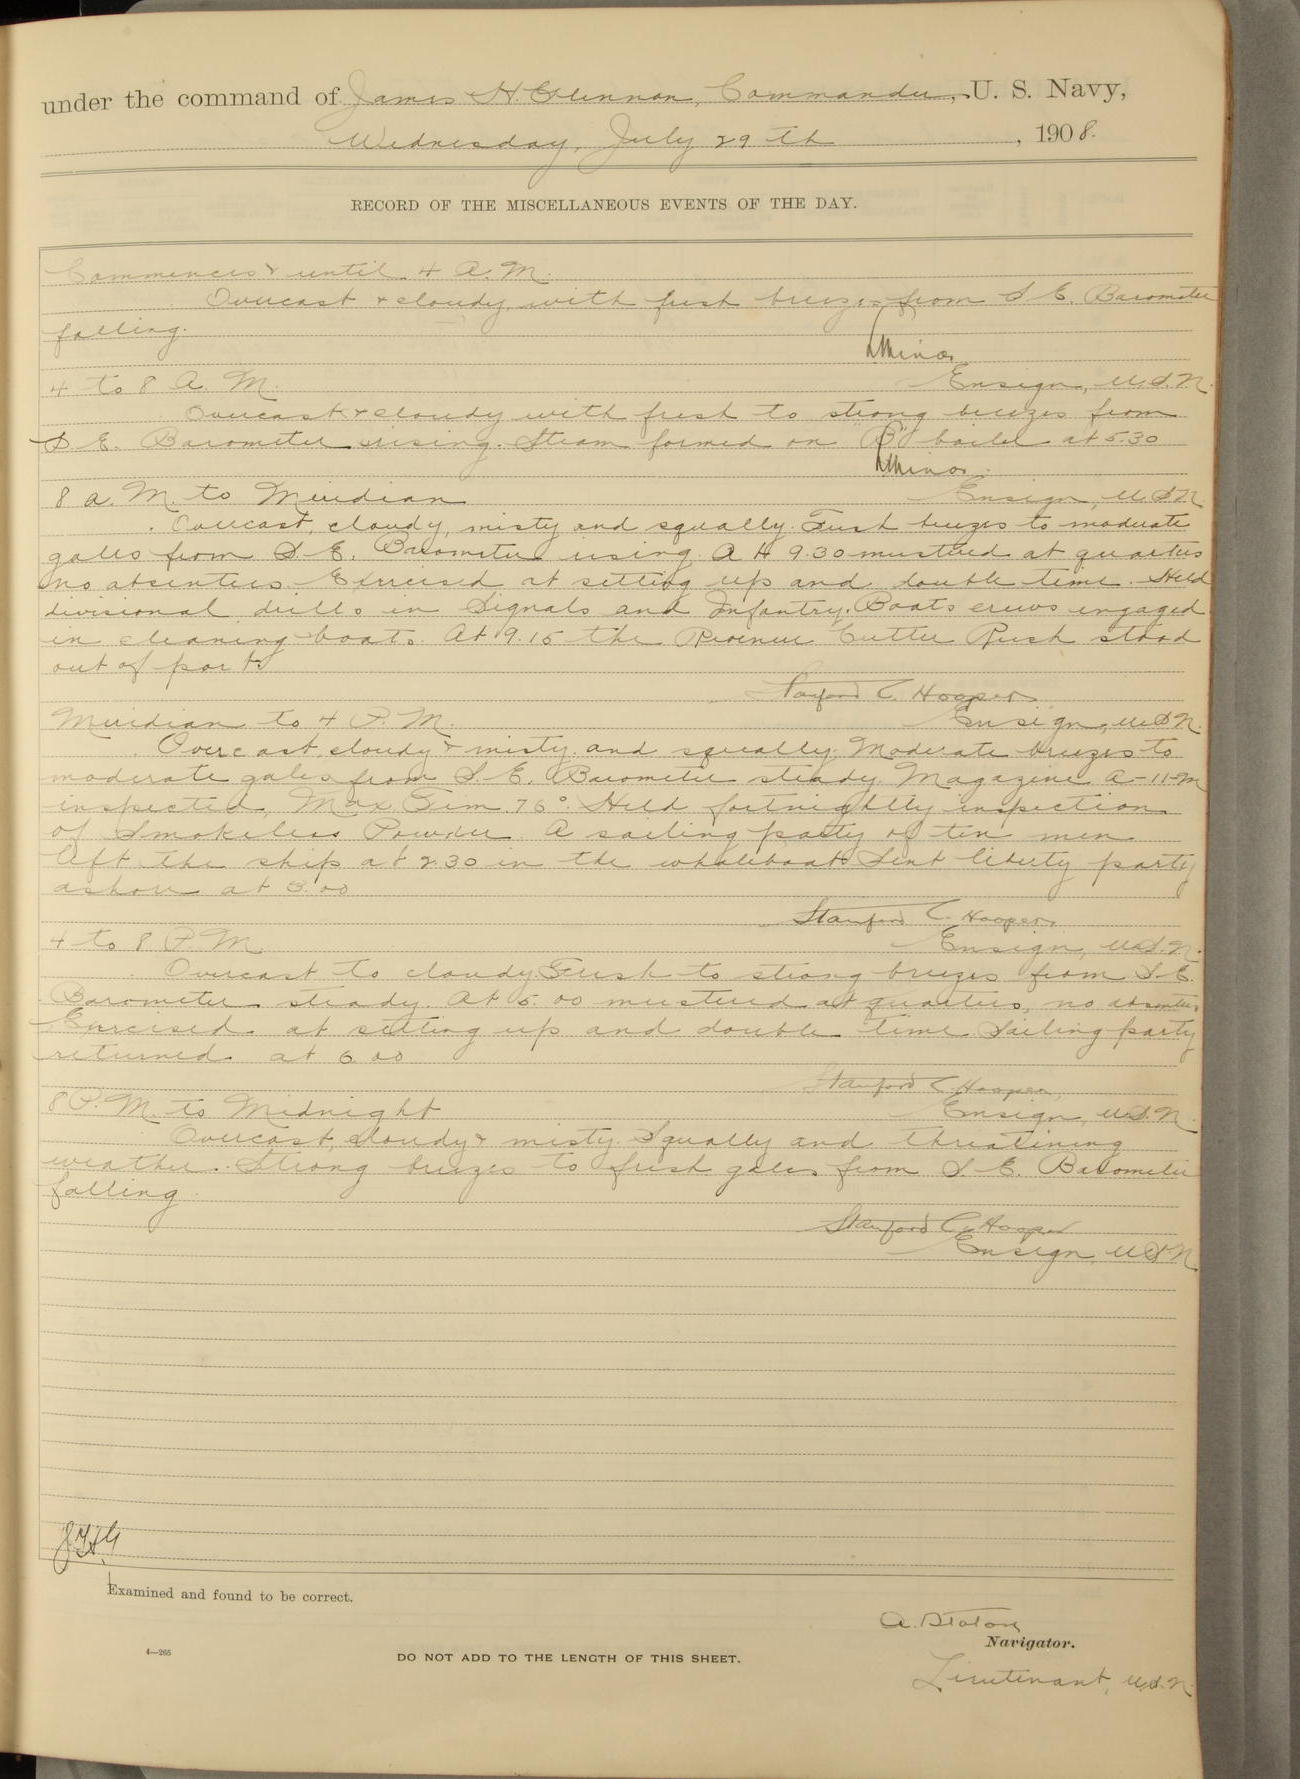 under the command of James H. Glennon, Commander, U. S. Navy,
Wednesday, July 29th, 1908.
RECORD OF THE MISCELLANEOUS EVENTS OF THE DAY.
Commences & until 4 A.M.
Overcast & cloudy with fresh breezes from S E. Barometer
falling.
4 to 8 A. M.
Ensign, U.S.N.
Overcast & cloudy with fresh to strong breezes from
S. E. Barometer rising. Steam formed on "B" boiler at 5.30
8 A. M. to Meridian
Ensign, U.S.N.
Overcast, cloudy, misty and squally. Fresh breezes to moderate
gales from S. E. Barometer rising. At 9.30 mustered at quarters
no absentees. Exercised at setting up and double time. Held
divisional drills in Signals and Infantry. Boats crews engaged
in cleaning boats. At 9.15 the Revenue Cutter Rush stood
out of port.
Stanford C. Hooper
Meridian to 4 P. M.
Ensign, U.S.N.
Overcast, cloudy & misty and squally. Moderate breezes to
moderate gales from S. E. Barometer steady. Magazine A-11-M
inspected, Max. Tem. 76°. Held fortnightly inspection
of Smokeless Powder. A sailing party of ten men
left the ship at 2.30 in the whaleboat. Sent liberty party
ashore at 3.00
Stanford C. Hooper,
4 to 8 P M
Ensign, U.S.N.
Overcast to cloudy. Fresh to strong breezes from S.E.
Barometer steady. At 5.00 mustered at quarters, no absentees.
Exercised at setting up and double time. Sailing party
returned at 6 00
Stanford C. Hooper,
8 P. M. to Midnight
Ensign, U.S.N.
Overcast, cloudy & misty. Squally and threatening
weather. Strong breezes to fresh gales from S. E. Barometer
falling.
Stanford C. Hooper
Ensign, U.S.N.
JHG
Examined and found to be correct.
A. Staton
Navigator.
4—265
DO NOT ADD TO THE LENGTH OF THIS SHEET.
Lieutenant, U.S.N.